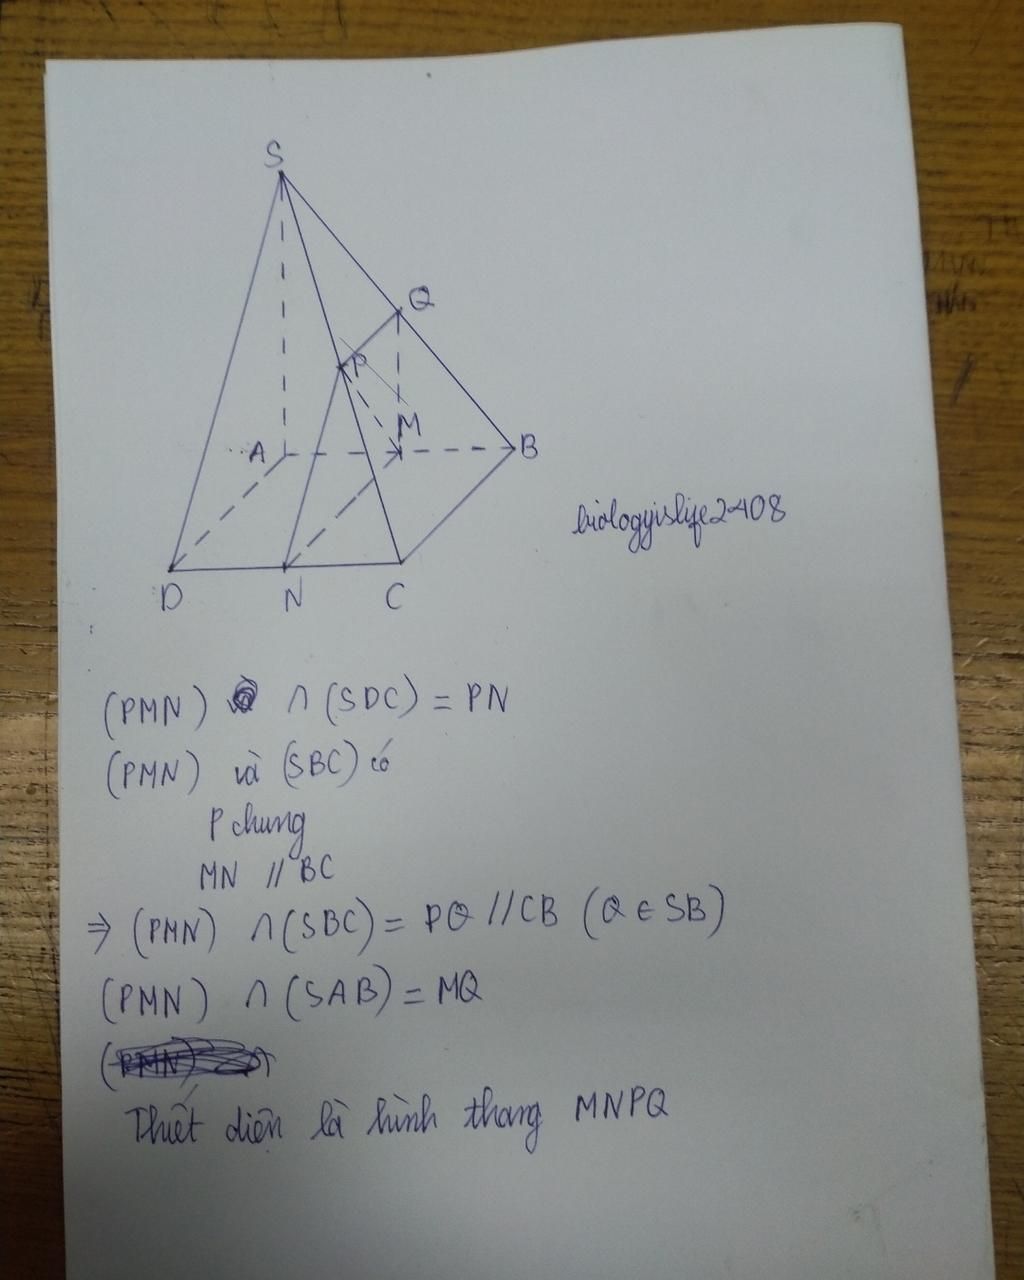 S
Q
P
M
A
B
biologyislife2408
D N C
(PMN) ∩ (SDC) = PN
(PMN) và (SBC) có
P chung
MN // BC
⇒ (PMN) ∩ (SBC) = PQ // CB (Q ∈ SB)
(PMN) ∩ (SAB) = MQ
Thiết diện là hình thang MNPQ